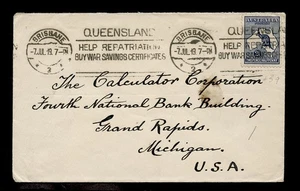 BRISBANE
7.JUL.19. 7-P
2
QUEENSLAND
HELP REPATRIATION
BUY WAR SAVINGS CERTIFICATES
BRISBANE
7.JUL.19. 7-P
2
QUEENSLAND
AUSTRALIA
The Calculator Corporation
Fourth National Bank Building.
Grand Rapids.
Michigan.
U.S.A.